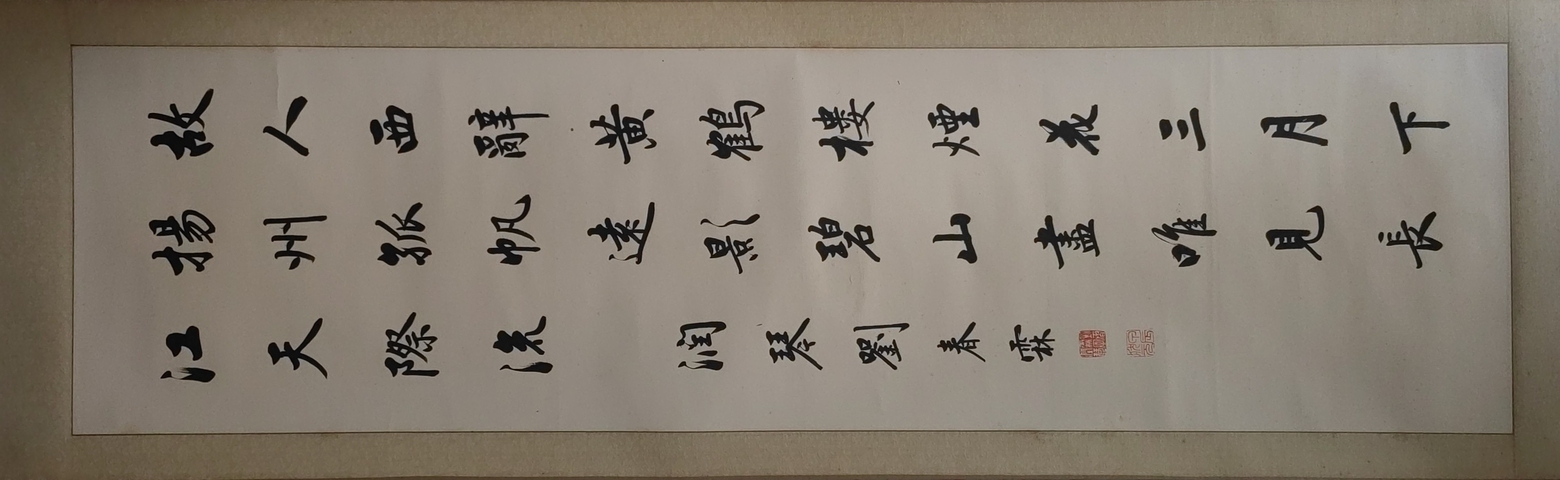 故人西辭黃鶴樓煙花三月下
揚州孤帆遠影碧山盡唯見長
江天際流
潤琴劉春霖